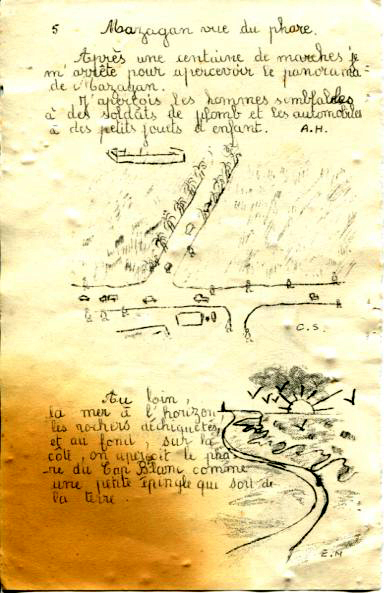 5 Mazagan vue du phare.
Après une centaine de marches je
m'arrête pour apercevoir le panorama
de Mazagan.
J'aperçois les hommes semblables
à des soldats de plomb et les automobiles
à des petits jouets d'enfant. A.H.
C.S.
Au loin,
la mer à l'horizon,
les rochers déchiquetés,
et au fond, sur la
côte, on aperçoit le pha-
-re du Cap Blanc comme
une petite épingle qui sort de
la terre.
E.M